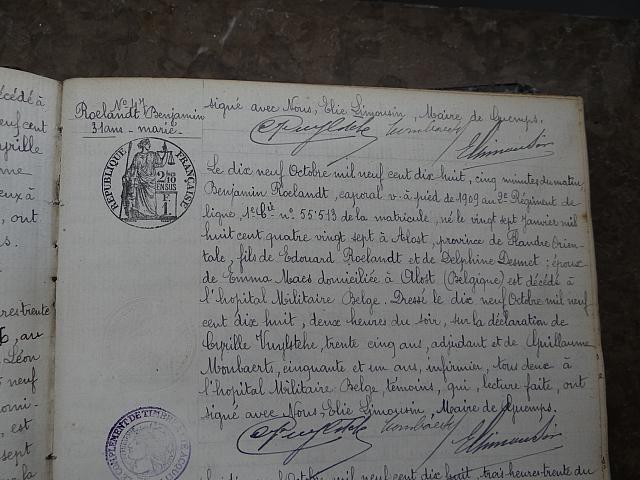 écédé à
neuf cent
Cyrille
enne
eux à
, ont
s.
res trente
, au
Léon
neuf
omi-
, est
sept
la
N° 47
Roelandt Benjamin
31 ans - marié -
RÉPUBLIQUE FRANÇAISE
2/10
EN SUS
F.
1
COMPLÉMENT DE TIMBRE
signé avec Nous, Elie Limousin, Maire de Guemps.
CVuylsteke Mombaert ELimousin
Le dix neuf Octobre mil neuf cent dix huit, cinq minutes du matin,
Benjamin Roelandt, caporal v. à pied de 1909 au 2e Régiment de
ligne, 1e Cie n° 55513 de la matricule, né le vingt sept Janvier mil
huit cent quatre vingt sept à Alost, province de Flandre Orien-
tale, fils de Edouard Roelandt et de Delphine Desmet ; époux
de Emma Maes domiciliée à Alost (Belgique) est décédé à
l'hopital Militaire Belge. Dressé le dix neuf Octobre mil neuf
cent dix huit, deux heures du soir, sur la déclaration de
Cyrille Vuylsteke, trente cinq ans, adjudant et de Guillaume
Mombaert, cinquante et un ans, infirmier, tous deux à
l'hopital Militaire Belge, témoins, qui, lecture faite, ont
signé avec Nous, Elie Limousin, Maire de Guemps.
CVuylsteke Mombaert ELimousin
Octobre mil neuf cent dix huit, trois heures trente du